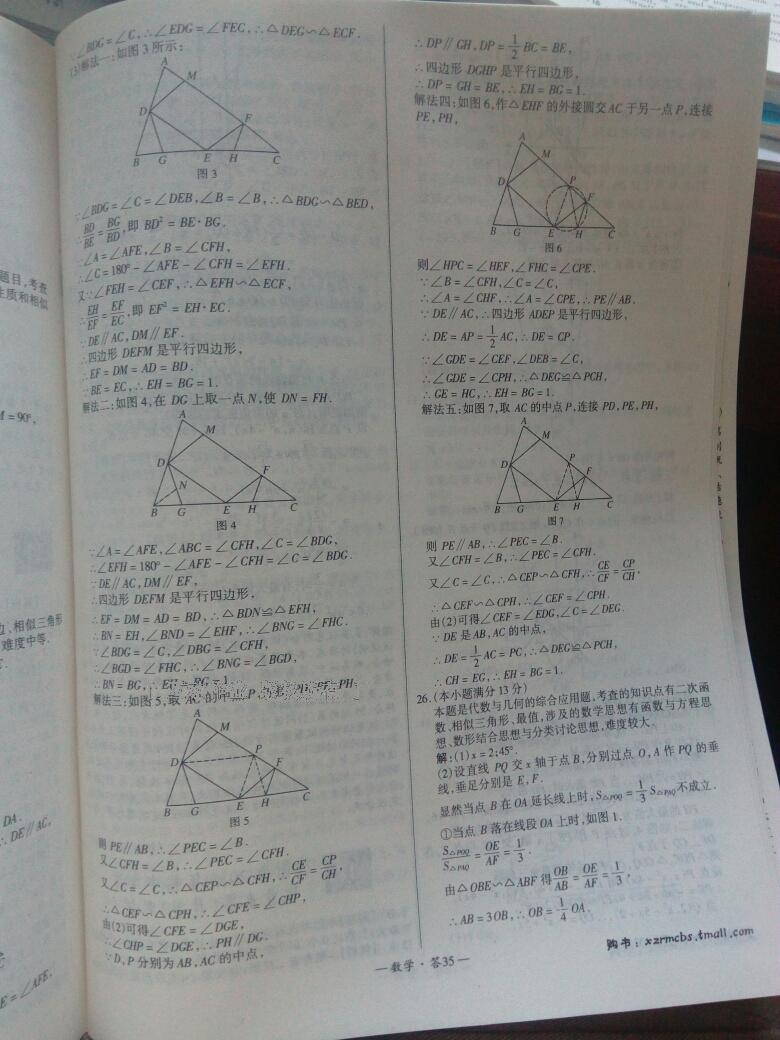 ∵∠BDG=∠C,∴∠EDG=∠FEC,∴△DEG∽△ECF.
(3)解法一:如图3所示:
A
M
D
F
B G E H C
图3
∵∠BDG=∠C=∠DEB,∠B=∠B,∴△BDG∽△BED,
∴BD/BE=BG/BD,即BD²=BE·BG.
∵∠A=∠AFE,∠B=∠CFH,
∴∠C=180°-∠AFE-∠CFH=∠EFH.
又∵∠FEH=∠CEF,∴△EFH∽△ECF,
∴EH/EF=EF/EC,即EF²=EH·EC.
∵DE∥AC,DM∥EF,
∴四边形DEFM是平行四边形,
∴EF=DM=AD=BD.
∵BE=EC,∴EH=BG=1.
解法二:如图4,在DG上取一点N,使DN=FH.
A
M
D
F
N
B G E H C
图4
∵∠A=∠AFE,∠ABC=∠CFH,∠C=∠BDG,
∴∠EFH=180°-∠AFE-∠CFH=∠C=∠BDG.
∵DE∥AC,DM∥EF,
∴四边形DEFM是平行四边形,
∴EF=DM=AD=BD,∴△BDN≌△EFH,
∴BN=EH,∠BND=∠EHF,∴∠BNG=∠FHC.
∵∠BDG=∠C,∠DBG=∠CFH,
∴∠BGD=∠FHC,∴∠BNG=∠BGD,
∴BN=BG,∴EH=BG=1.
解法三:如图5,取AC的中点P,连接PD,PE,PH,
A
M
P
D
F
B G E H C
图5
则PE∥AB,∴∠PEC=∠B.
又∠CFH=∠B,∴∠PEC=∠CFH.
又∠C=∠C,∴△CEP∽△CFH,∴CE/CF=CP/CH,
∴△CEF∽△CPH,∴∠CFE=∠CHP,
由(2)可得∠CFE=∠DGE,
∴∠CHP=∠DGE,∴PH∥DG.
∵D,P分别为AB,AC的中点,
∴DP∥GH,DP=1/2BC=BE,
∴四边形DGHP是平行四边形,
∴DP=GH=BE,∴EH=BG=1.
解法四:如图6,作△EHF的外接圆交AC于另一点P,连接
PE,PH,
A
M
D P
F
B G E H C
图6
则∠HPC=∠HEF,∠FHC=∠CPE.
∵∠B=∠CFH,∠C=∠C,
∴∠A=∠CHF,∴∠A=∠CPE,∴PE∥AB.
∵DE∥AC,∴四边形ADEP是平行四边形,
∴DE=AP=1/2AC,∴DE=CP.
∵∠GDE=∠CEF,∠DEB=∠C,
∴∠GDE=∠CPH,∴△DEG≌△PCH,
∴GE=HC,∴EH=BG=1.
解法五:如图7,取AC的中点P,连接PD,PE,PH,
A
M
D P
F
B G E H C
图7
则PE∥AB,∴∠PEC=∠B.
又∠CFH=∠B,∴∠PEC=∠CFH.
又∠C=∠C,∴△CEP∽△CFH,∴CE/CF=CP/CH,
∴△CEF∽△CPH,∴∠CEF=∠CPH.
由(2)可得∠CEF=∠EDG,∠C=∠DEG.
∵DE是AB,AC的中点,
∴DE=1/2AC=PC,∴△DEG≌△PCH,
∴CH=EG,∴EH=BG=1.
26.(本小题满分13分)
本题是代数与几何的综合应用题,考查的知识点有二次函
数、相似三角形、最值,涉及的数学思想有函数与方程思
想、数形结合思想与分类讨论思想,难度较大.
解:(1)x=2;45°.
(2)设直线PQ交x轴于点B,分别过点O,A作PQ的垂
线,垂足分别是E,F.
显然当点B在OA延长线上时,S△POQ=1/3S△PAQ不成立.
①当点B落在线段OA上时,如图1.
S△POQ/S△PAQ=OE/AF=1/3.
由△OBE∽△ABF得OB/AB=OE/AF=1/3,
∴AB=3OB,∴OB=1/4OA.
—数学·答35—
购书:xzrmcbs.tmall.com
题目,考查
性质和相似
M=90°,
边、相似三角形
难度中等.
DA.
∴DE∥AC,
E=∠AFE,